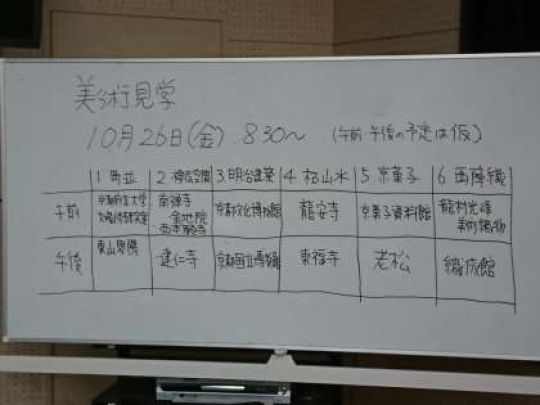 美術見学
10月26日(金) 8:30〜 (午前・午後の予定は仮)
1 町並 2 禅院空間 3 明治建築 4 枯山水 5 京菓子 6 西陣織
午前 京都府立大学 南禅寺 金地院 西本願寺 京都文化博物館 龍安寺 京菓子資料館 龍村光峯 美術織物
午後 東山界隈 建仁寺 京都国立博物館 東福寺 老松 織成館